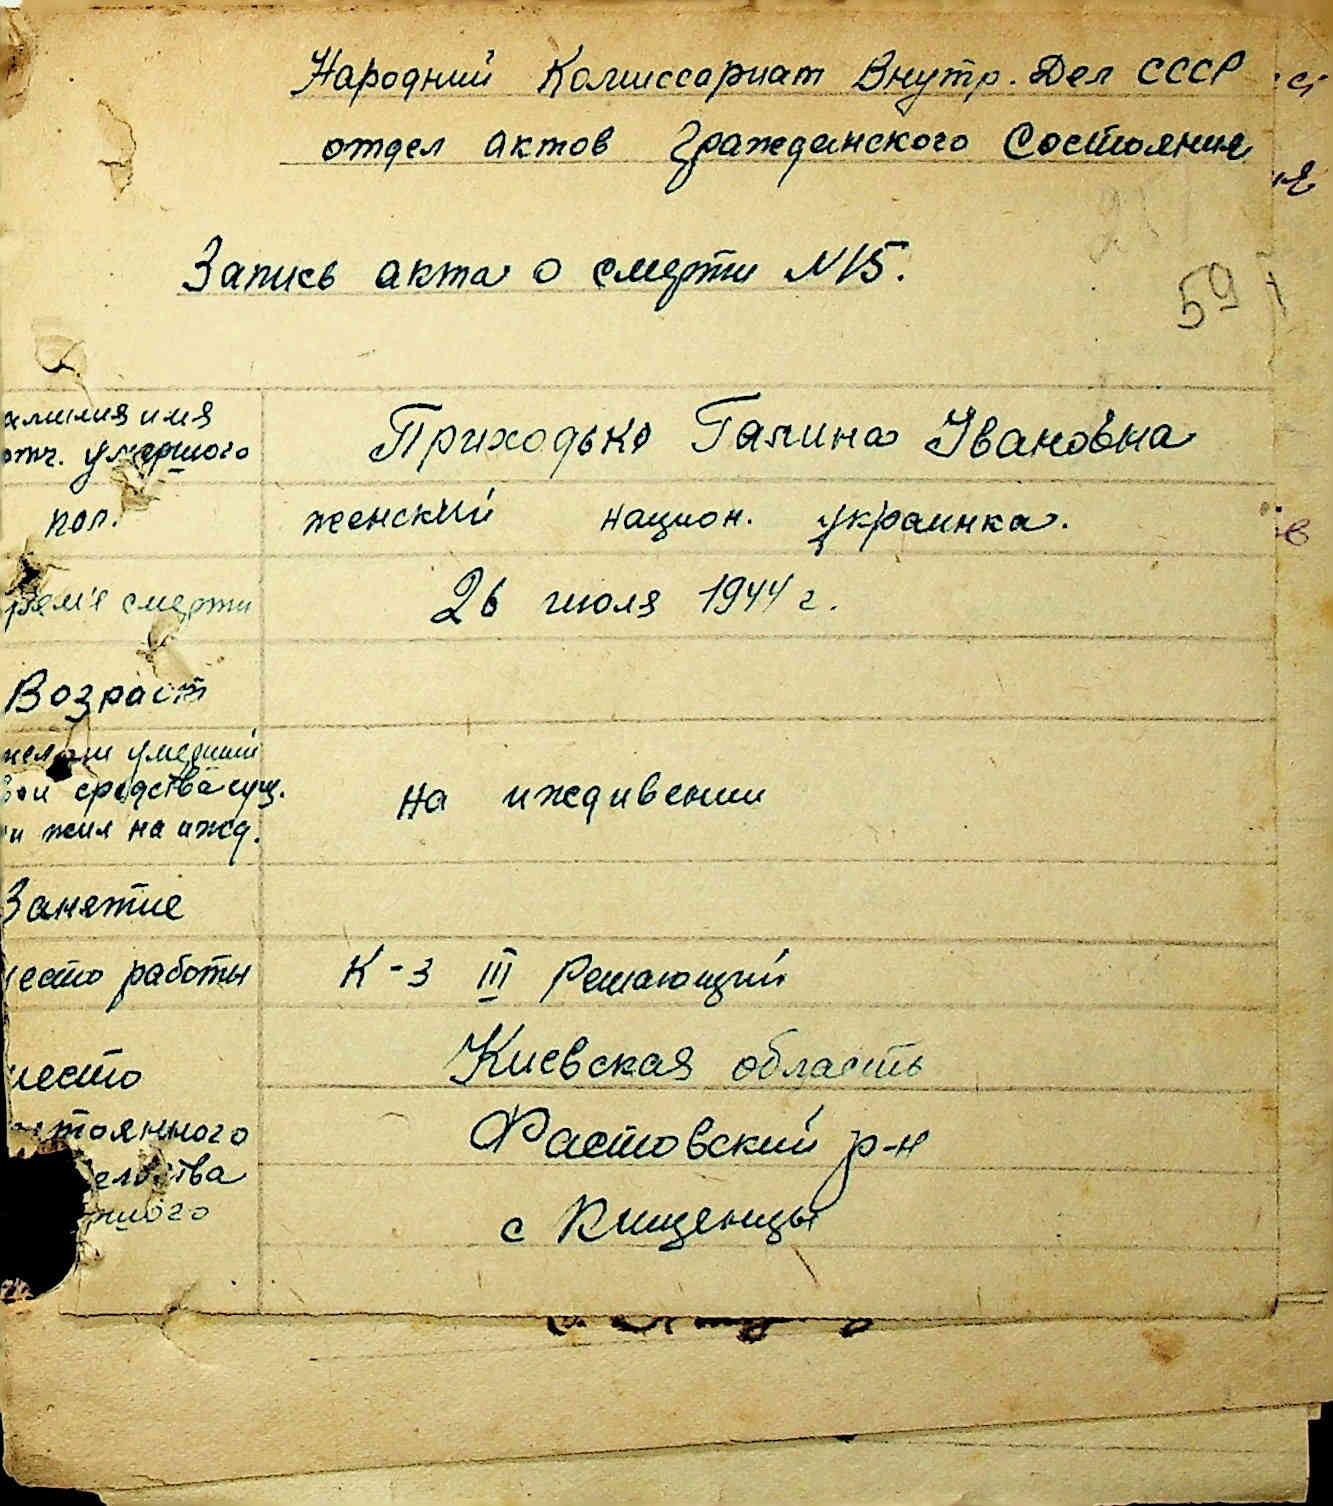 Народний Комиссариат Внутр. Дел СССР
отдел актов Гражданского Состояния
Запись акта о смерти №15.
59
амилия имя
отч. умершого
Приходько Галина Ивановна
пол.
женский национ. украинка.
время смерти
26 июля 1944 г.
Возраст
умерший
средства сущ.
жил на ижд.
на иждивении
Занятие
место работы
К-з III Решающий
место
Киевская область
Фастовский р-н
с Кищенцы